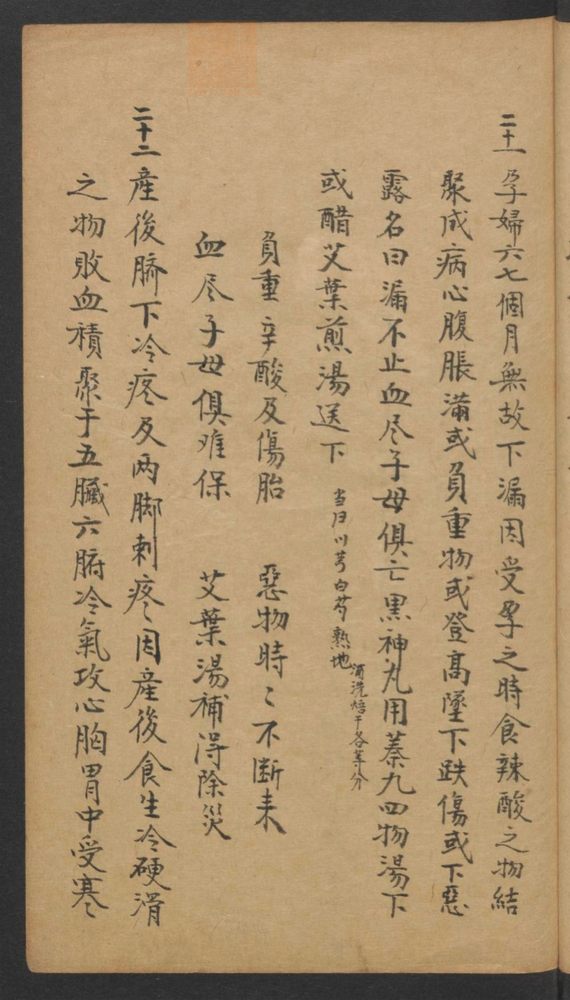 二十一 孕婦六七個月無故下漏因受孕之時食辣酸之物結
聚成病心腹脹滿或負重物或登高墜下跌傷或下惡
露名曰漏不止血尽子母俱亡黑神丸用蓁九四物湯下
或醋艾葉煎湯送下 当归川芎白芍熟地酒洗焙干各等分
負重辛酸及傷胎 惡物時〻不断来
血尽子母俱难保 艾葉湯補得除災
二十二 産後臍下冷疼及两脚刺疼因産後食生冷硬滑
之物敗血積聚于五臟六腑冷氣攻心胸胃中受寒